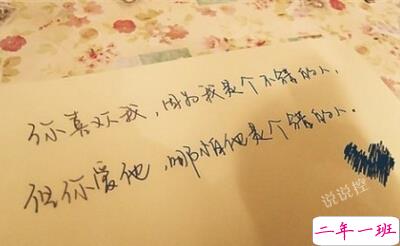 你喜欢我，因为我是个不错的人，
但你爱他，哪怕他是个错的人．
说说控
二年一班